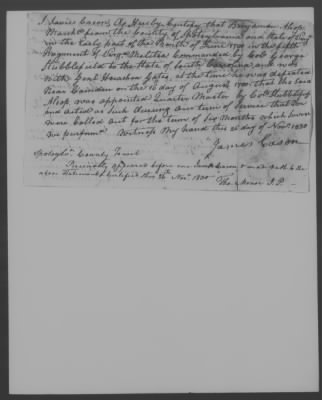 I James Cason, do Hereby Certify that Benjamin Alsop
March'd from the County of Spotsylvania and State of Virg
in the Early part of the Month of June 1780 in the
Regiment of Virg Malitia Commanded by Col. George
Stubblefield to the State of South Carolina and was
with Genl Horatio Gates, at the time he was defeated
Near Camden on the 16 day of August 1780. that the said
Alsop was appointed Quarter Master by Col. Stubblefield
and acted as such during our turn of Service that we
were Called out for the term of Six Months which
we perform'd. Witness My hand this 26 day of Novr. 1830
James Cason
County Towit
Personally appeared before me James Cason & made oath to the
above Statement Certified this 26th Novr. 1830
Tho. Minor J.P.